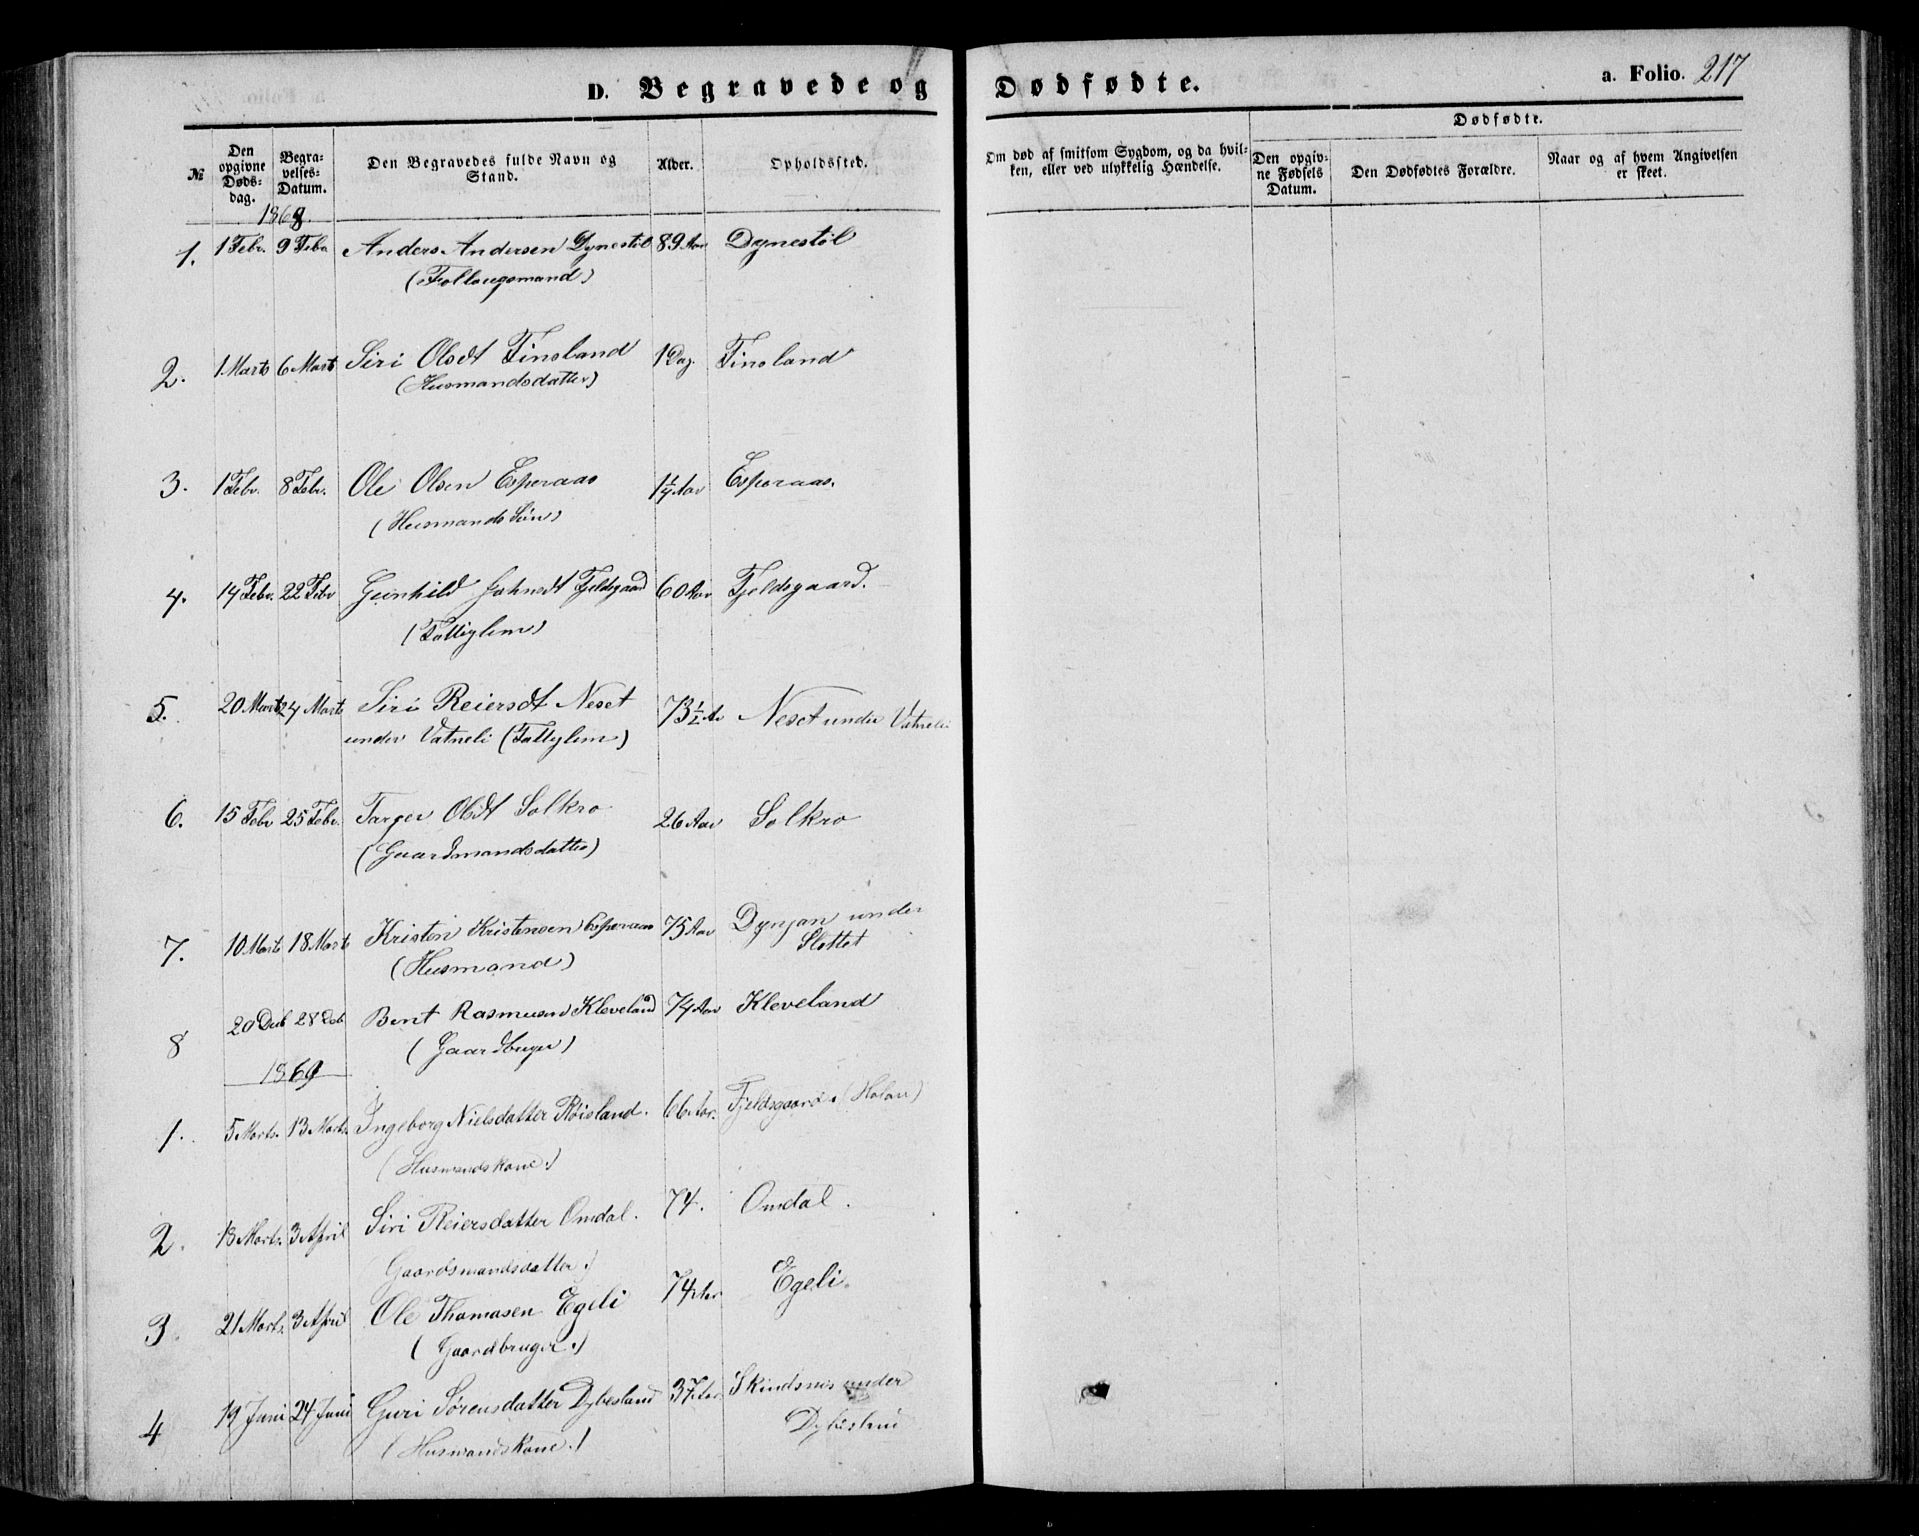 D. Begravede og Dødfødte.
a. Folio. 217
№
Den opgivne Døds-dag.
Begra-velses-Datum.
Den Begravedes fulde Navn og Stand.
Alder.
Opholdssted.
Om død af smitsom Sygdom, og da hvil-ken, eller ved ulykkelig Hændelse.
Dødfødte.
Den opgiv-ne Fødsels Datum.
Den Dødfødtes Forældre.
Naar og af hvem Angivelsen er skeet.
1868.
1. 1 Febr. 9 Febr Anders Andersen Dynestøl 89 Aar Dynestøl
(Follaugsmand)
2. 1 Marts 6 Marts Siri Olsdt Finsland 1 Dag. Finsland
(Husmandsdatter)
3. 1 Febr. 8 Febr. Ole Olsen Esperaas 1¼ Aar Esperaas.
(Husmands Søn)
4. 14 Febr. 22 Febr Gunhild Johnsdt Fjeldsgaard 60 Aar Fjeldsgaard.
(Fattiglem)
5. 20 Marts 24 Marts Siri Reiersdt Neset 73½ Ar Neset under Vatneli
under Vatneli (Fattiglem)
6. 15 Febr 25 Febr. Targer Olsdt Solkro 26 Aar Solkro
(Gaardmandsdatter)
7. 10 Marts 18 Marts Kristen Kristensen Esperaas 75 Aar Dynjan under
(Husmand) Slottet
8 20 Deb 28 Deb Bent Rasmusen Kleveland 74 Aar Kleveland
(Gaardbruger)
1869
1. 5 Marts. 13 Marts. Ingeborg Nielsdatter Røisland. 66 Aar. Fjeldsgaard (Holan)
(Husmandskone.)
2. 13 Marts. 3 April Siri Reiersdatter Omdal. 74. Omdal.
Gaardsmandsdatter.)
3. 21 Marts. 3 April Ole Thomasen Egeli 74 Aar Egeli.
(Gaardbruger.)
4 19 Juni 24 Juni Guri Sørensdatter Dybesland 37 Aar Skindsnes under
(Husmandskone.)